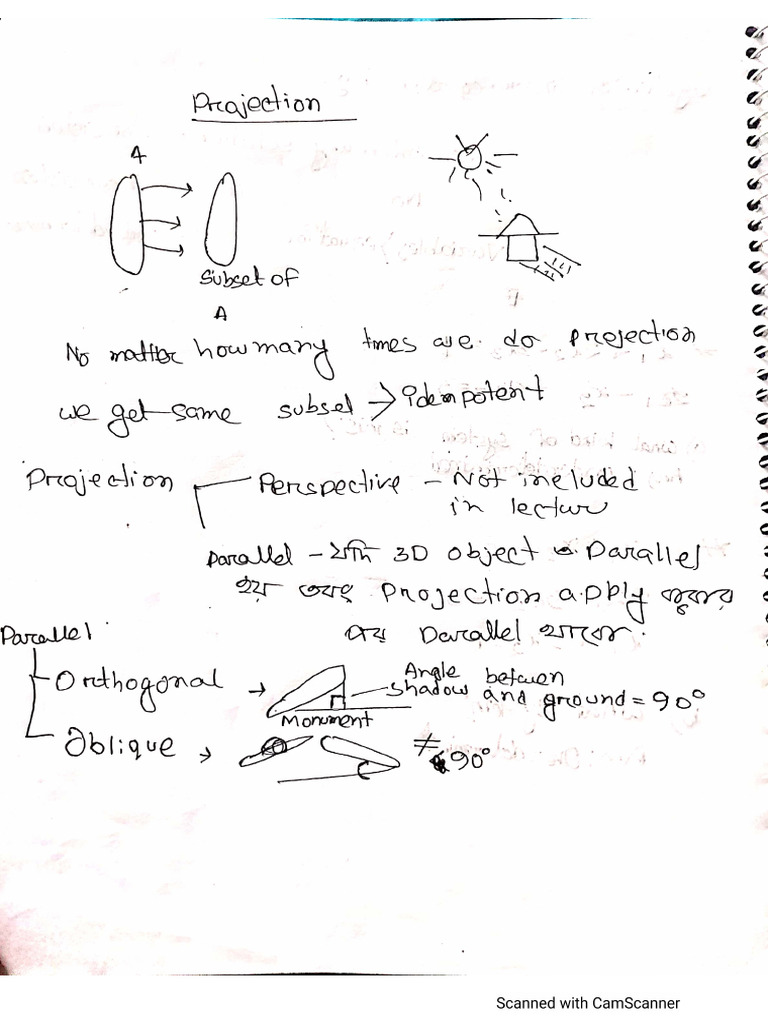 Projection
A
Subset of
A
No matter how many times we do projection
we get same subset → idempotent
Projection
Perspective - Not included
in lecture
Parallel - যদি 3D object Parallel
হয় তবে Projection apply করার
পর Parallel থাকবে.
Parallel
Orthogonal →
Angle between
shadow and ground = 90°
Monument
Oblique → ≠ 90°
Scanned with CamScanner